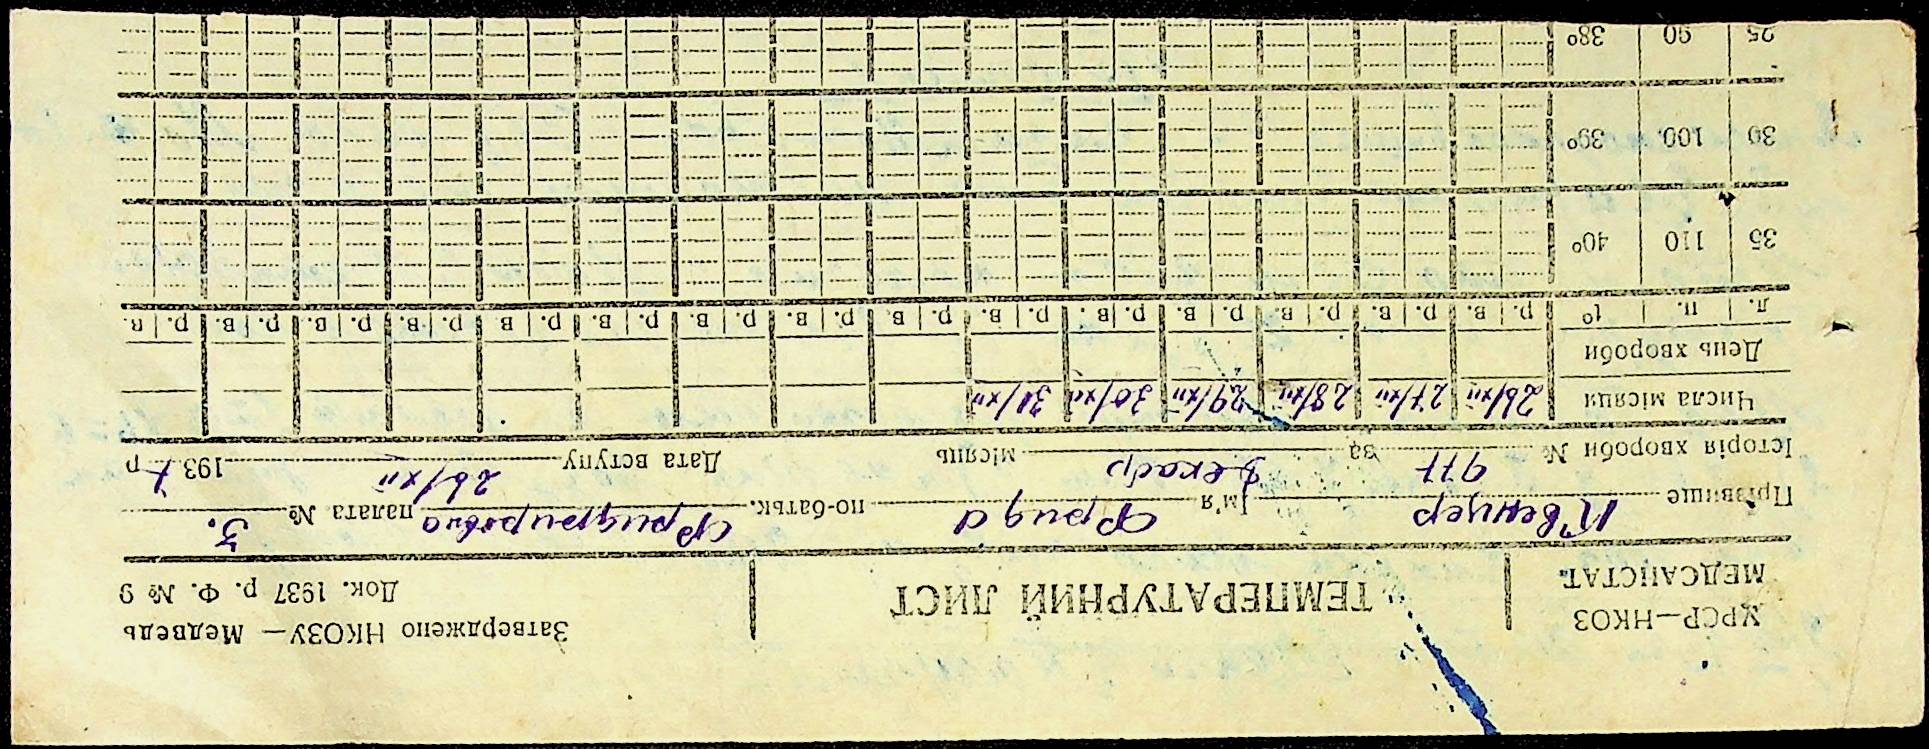 УРСР—НКОЗ
МЕДСАНСТАТ.
ТЕМПЕРАТУРНИЙ ЛИСТ
Затверджено НКОЗУ — Медведь
Док. 1937 р. Ф. № 9
Прізвище Ім'я Фрида по-батьк. палата № 3.
Історія хвороби № 977 за Декабр місяць Дата вступу 26/XII 1937 р
Числа місяця 26/XII 27/XII 28/XII 29/XII 30/XII 31/XII
День хвороби
л. п. t° р. в. р. в. р. в. р. в. р. в. р. в. р. в. р. в. р. в. р. в р. в. р. в. р. в. р. в. р. в.
35 110 40°
30 100 39°
25 90 38°